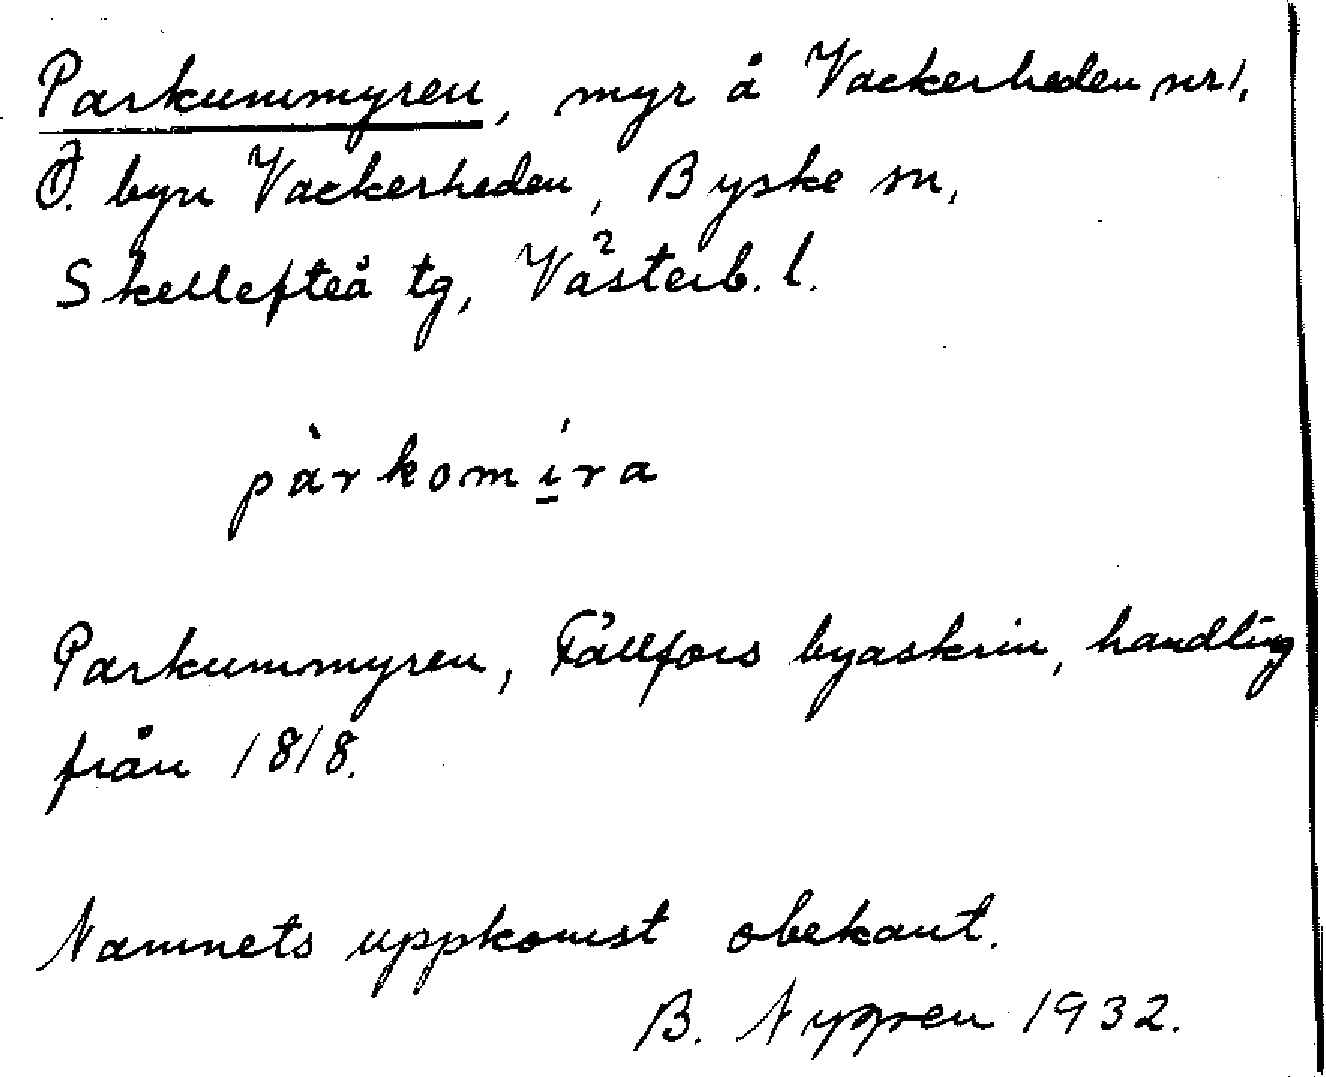 Parkummyren, myr å Vackerheden nr 1,
Ö. byn Vackerheden, Byske sn,
Skellefteå tg, Västerb. l.
pàrkomíra
Parkummyren, Fällfors byaskrin, handling
från 1818.
Namnets uppkomst obekant.
B. Nygren 1932.